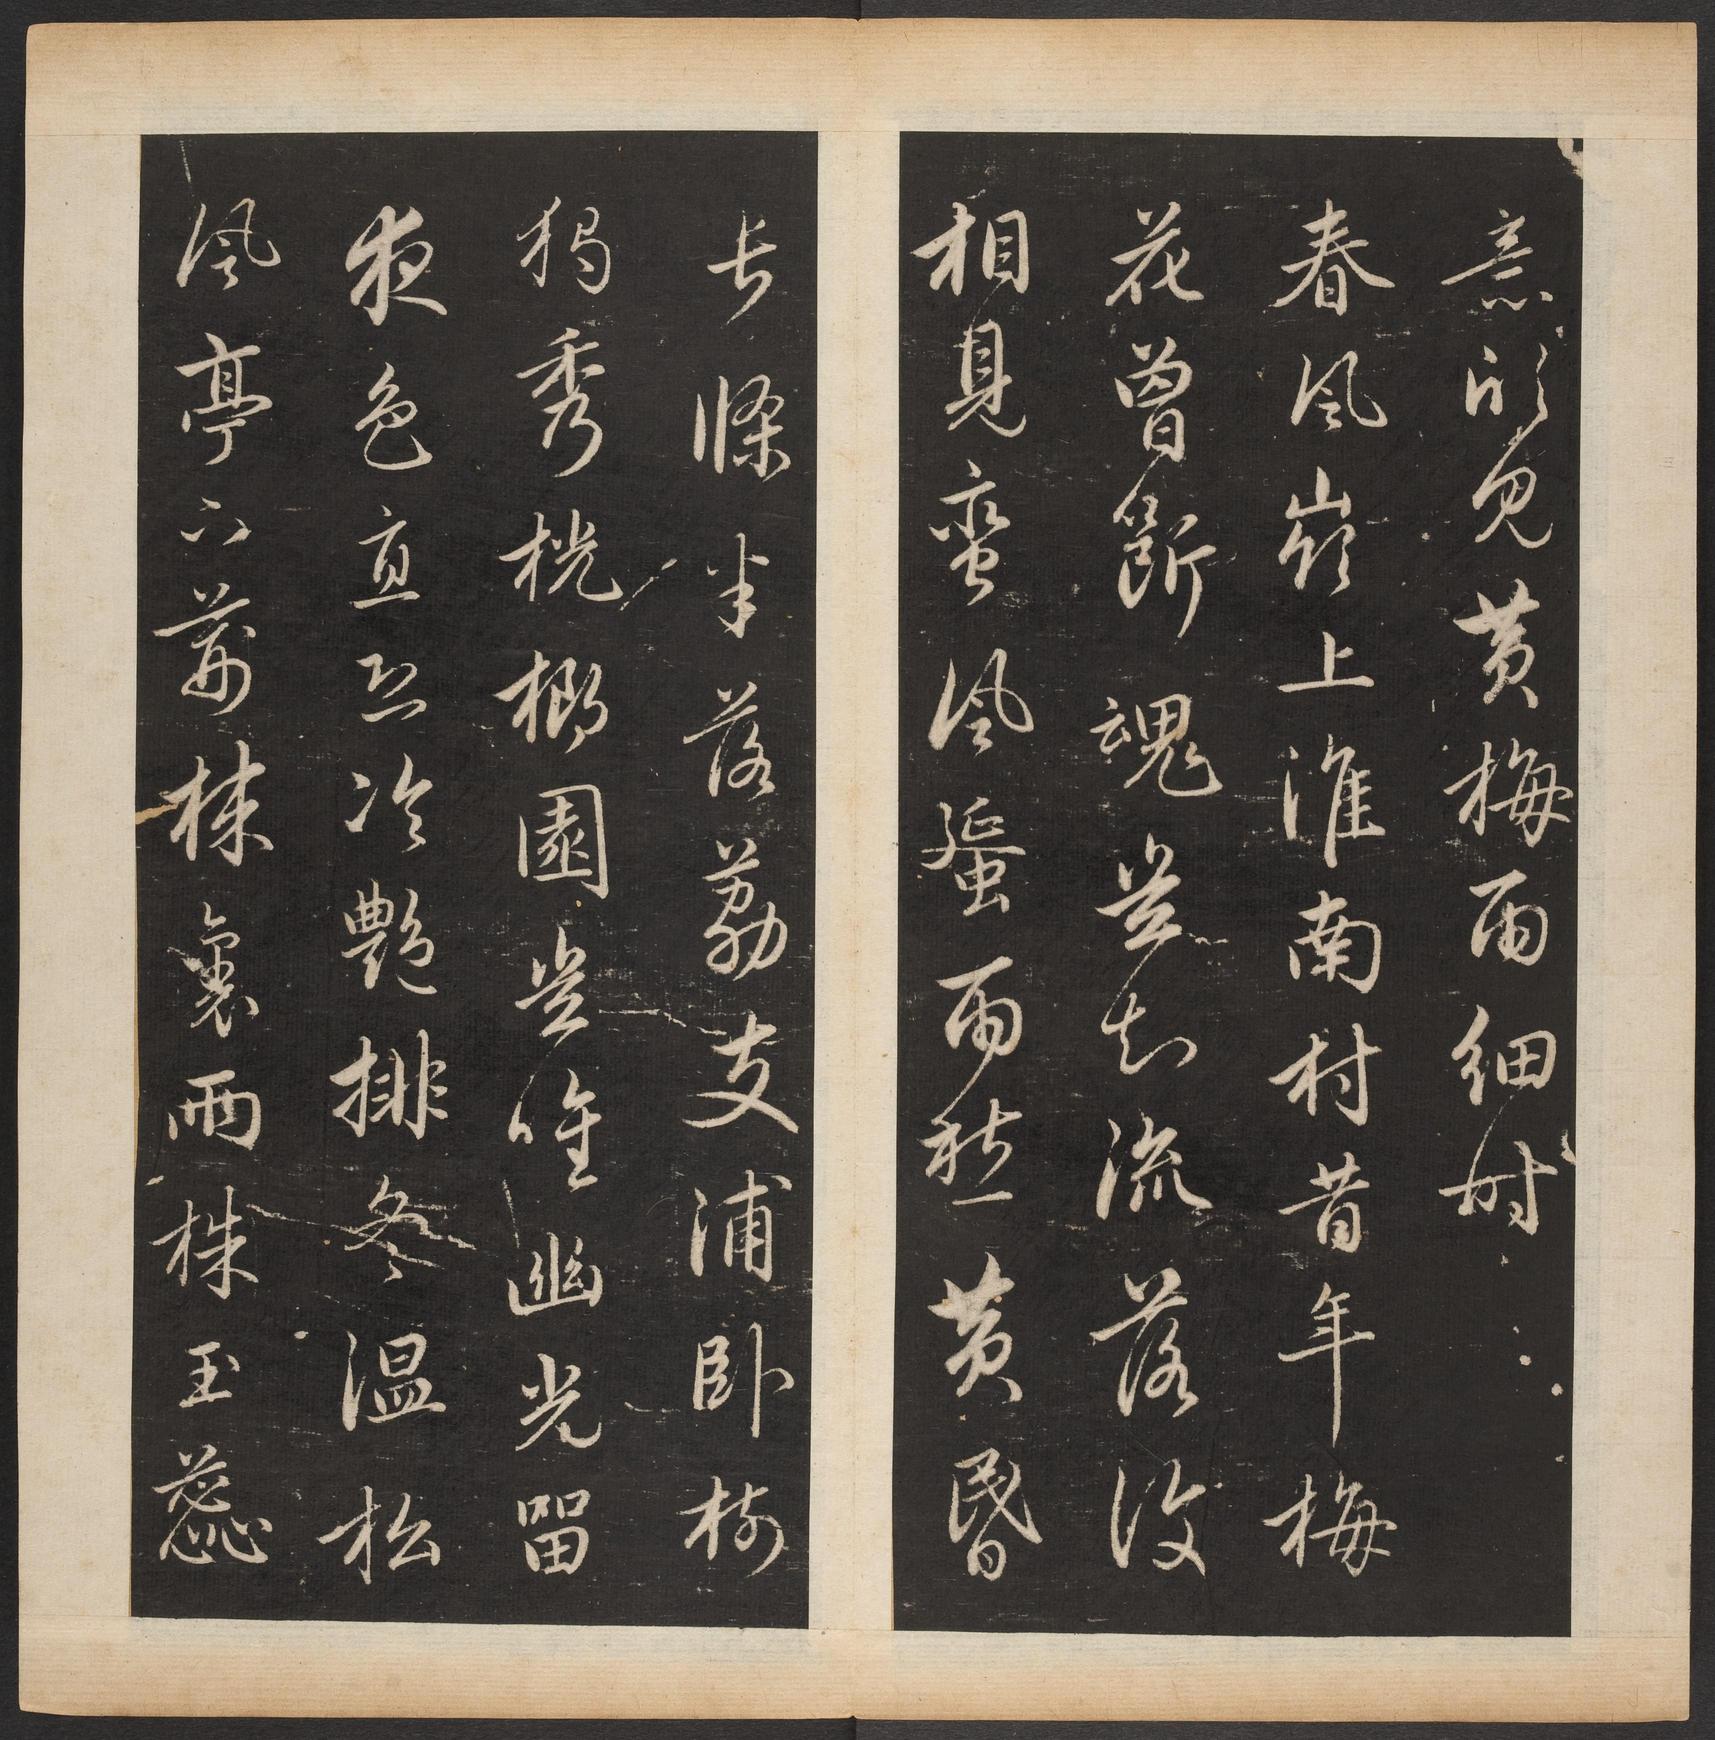 意怕見黃梅雨細時
春風嶺上淮南村昔年梅
花曾斷魂豈知流落復
相見蠻風蜑雨愁黃昏
長條半落荔支浦臥樹
獨秀桄榔園豈惟幽光留
夜色直恐冷艷排冬溫松
風亭下荊棘裏兩株玉蕊